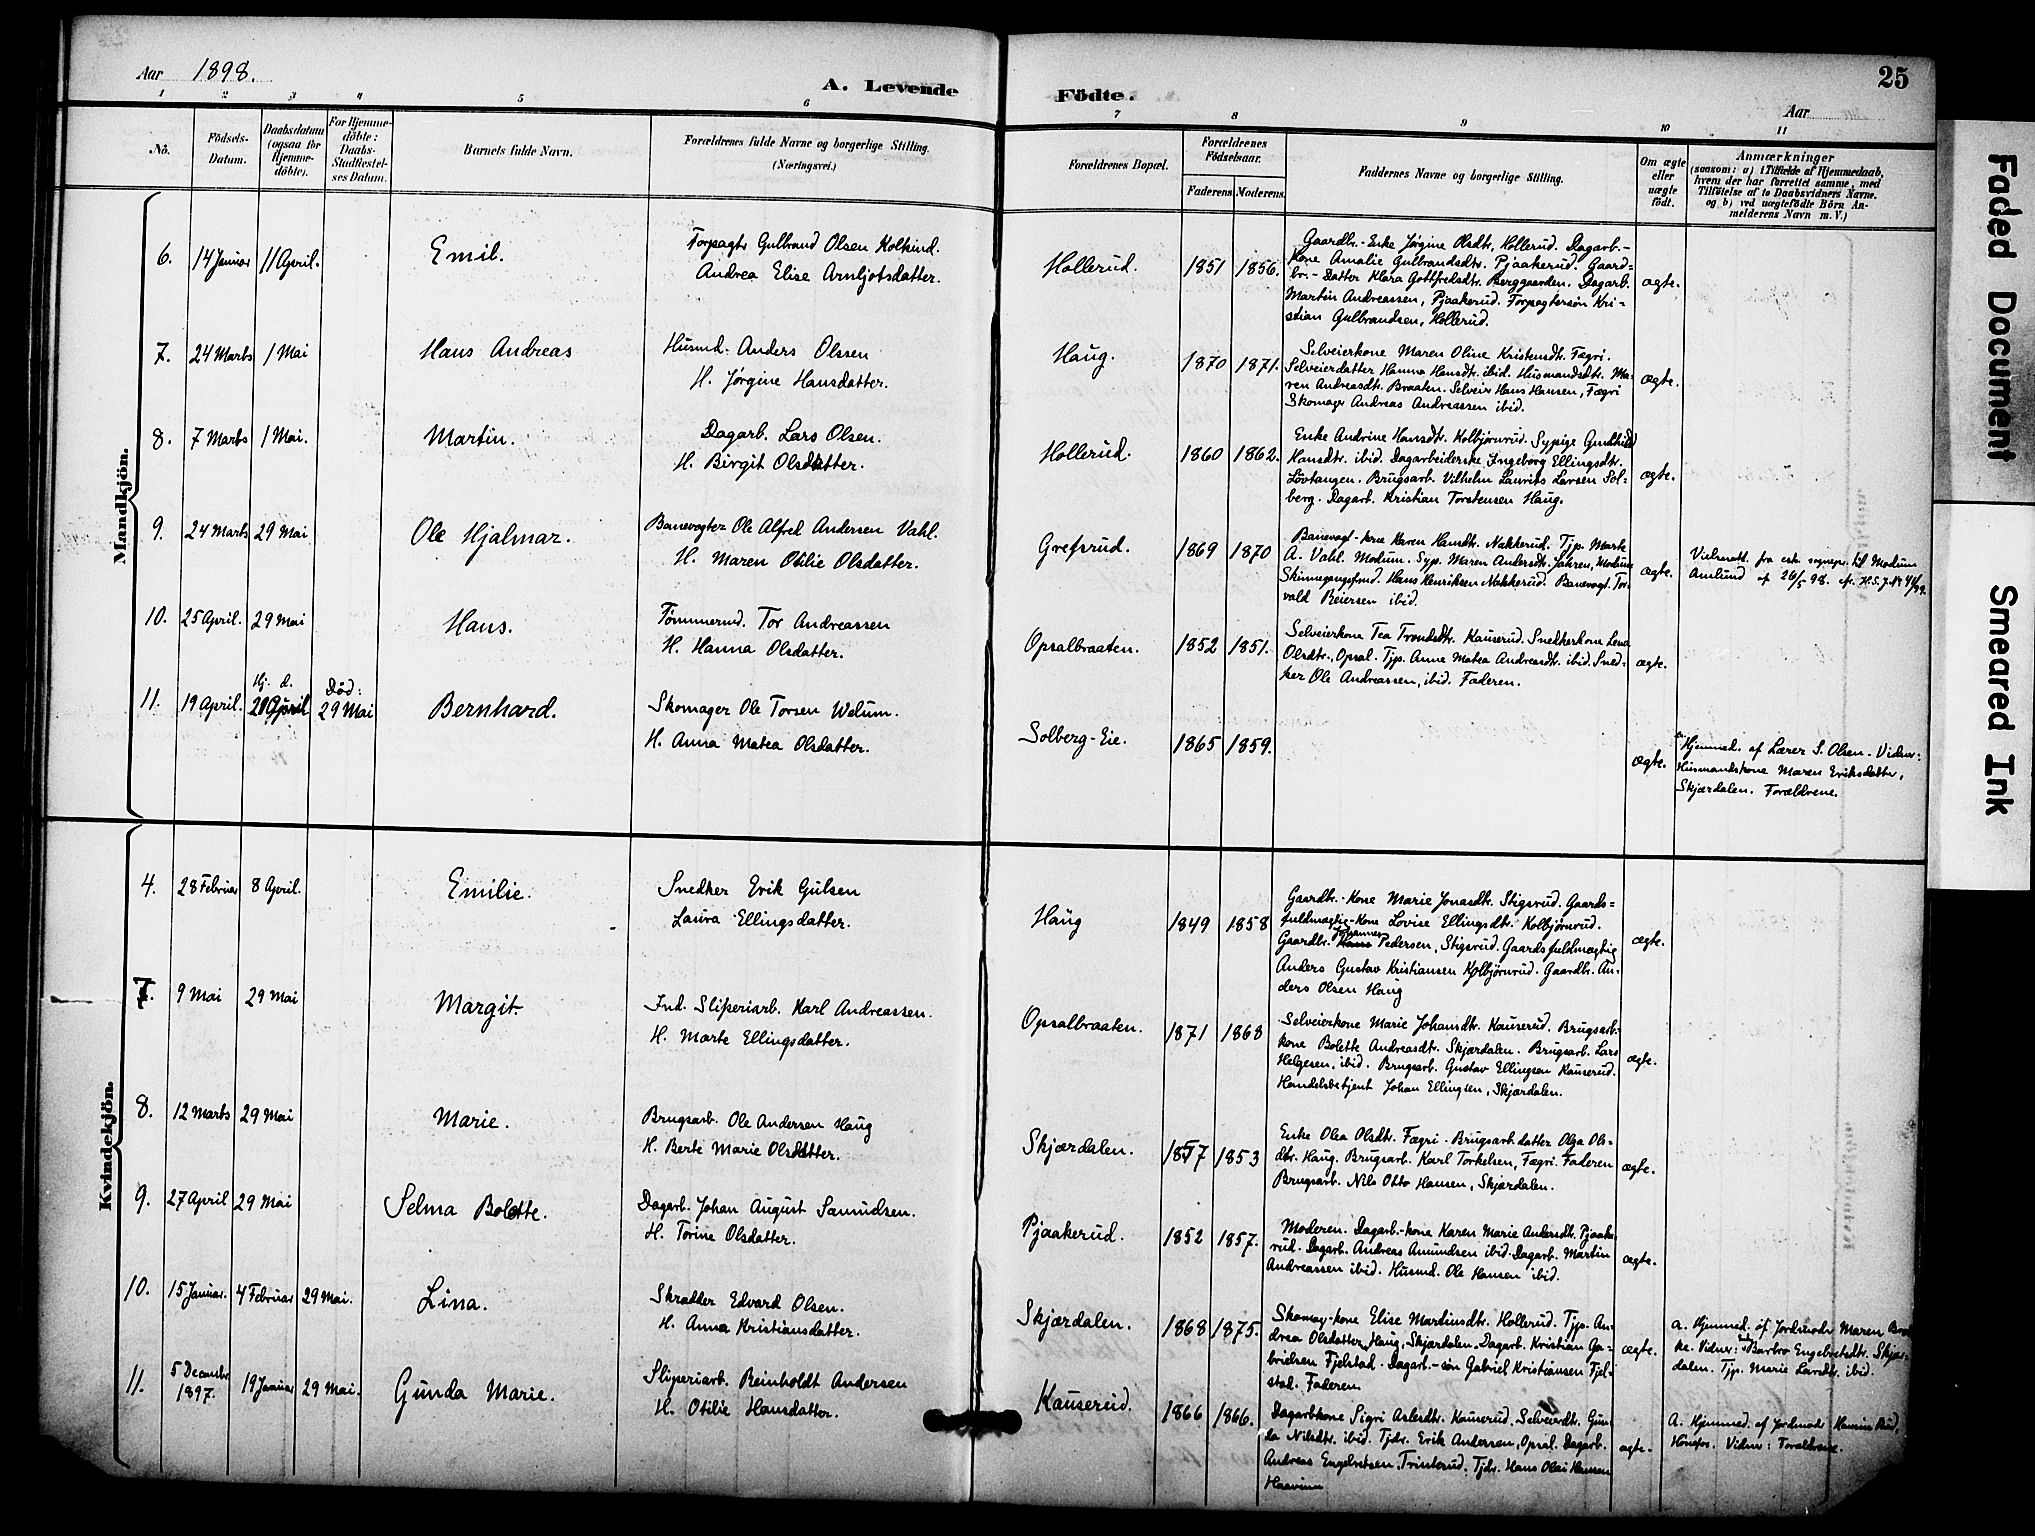 Aar 1898.
A. Levende
Födte.
25
Aar
1 2 3 4 5 6 7 8 9 10 11
Nô.
Födsels-
Datum.
Daabsdatum
(ogsaa for
Hjemme-
döbte).
For Hjemme-
döbte:
Daabs-
Stadfæstel-
ses Datum.
Barnets fulde Navn.
Forældrenes fulde Navne og borgerlige Stilling.
(Næringsvei.)
Forældrenes Bopæl.
Forældrenes
Födselsaar.
Faderens Moderens
Faddernes Navne og borgerlige Stilling.
Om ægte
eller
uægte
født.
Anmærkninger
(saasom: a) i Tilfælde af Hjemmedaab,
hvem der har forrettet samme, med
Tilföielse af to Daabsvidners Navne.
og b) ved uægtefødte Börn An-
melderens Navn m. V.)
Mandkjön.
6. 14 Januar 11 April. Emil.
Forpagtr Gulbrand Olsen Kolkind.
Andrea Elise Arnljotsdatter.
Hollerud. 1851 1856.
Gaardbr.-Enke Jørgine Olsdtr, Hollerud. Dagarb.-
Kone Amalie Gulbrandsdtr. Pjaakerud. Gaard-
br.-Datter Klara Gottfredsdtr. Berggaarden. Dagarb.
Martin Andreassen, Pjaakerud. Forpagtersøn Kri-
stian Gulbrandsen, Hollerud.
ægte.
7. 24 Marts 1 Mai Hans Andreas
Husmd. Anders Olssen
H. Jørgine Hansdatter.
Haug. 1870 1871.
Selveierkone Maren Oline Kristensdtr. Fægri.
Selveierdatter Hanna Hansdtr. ibid. Husmandsdtr. Ma-
ren Andreasdtr. Braaten. Selveier Hans Hansen, Fægri
Skomager Andreas Andreassen ibid.
ægte.
8. 7 Marts 1 Mai. Martin.
Dagarb. Lars Olsen.
H. Birgit Olsdatter.
Hollerud. 1860 1862.
Enke Andrine Hansdtr. Kolbjørnrud. Sypige Gundhild
Hansdtr. ibid. Dagarbeiderske Ingeborg Ellingsdtr.
Løvtangen. Brugsarb. Vilhelm Laurits Larsen Sol-
berg. Dagarb. Kristian Torstensen Haug.
ægte.
9. 24 Marts 29 Mai Ole Hjalmar.
Banevogter Ole Alfred Andersen Vahl.
H. Maren Otilie Olsdatter.
Grefsrud. 1869 1870
Banevogt-kone Karen Hansdt. Nakkerud. Tjp. Marte
A. Vahl. Modum. Syp. Maren Andersdt. Jahren, Modum
Hans Henriksen Nakkerud. Banevogt. Tor-
vald Beiersen ibid.
ægte.
til Modum
26/5 98.
10. 25 April. 29 Mai Hans.
Tømmermd. Tor Andreassen
H. Hanna Olsdatter.
Opsalbraaten. 1852 1851.
Selveierkone Tea Trondsdtr. Kauserud. Snedkerkone Lena
Olsdtr., Opsal. Tjp. Anne Matea Andreasdt. ibid. Sned-
ker Ole Andreassen, ibid. Faderen.
ægte.
Hj. d. Död:
11. 19 April. 20 April 29 Mai Bernhard.
Skomager Ole Torsen Welum.
H. Anna Matea Olsdatter.
Solberg-Eie. 1865 1859.
ægte.
Hjemmed. af Lærer S. Olsen. Vidner:
Husmandskone Maren Eriksdatter,
Skjærdalen. Forældrene.
Kvindekjön.
4. 28 Februar 8 April. Emilie.
Snedker Erik Gulsen
Laura Ellingsdatter.
Haug 1849 1858
Gaardbr.-Kone Marie Jonasdtr. Stigsrud. Gaards-
fuldmægtig-Kone Lovise Ellingsdtr. Kolbjørnrud.
Gaardbr. Johannes Pedersen, Stigsrud. Gaardsfuldmægtig
Anders Gustav Kristiansen Kolbjørnrud. Gaardbr. An-
ders Olsen Haug
ægte.
7. 9 Mai 29 Mai Margit.
Ind. Sliperiarb. Karl Andreassen.
H. Marte Ellingsdatter.
Opsalbraaten. 1871 1868
Selveierkone Marie Johansdtr. Kauserud. Brugsarb.-
kone Bolette Andreasdt. Skjærdalen. Brugsarb. Lars
Helgesen, ibid. Brugsarb. Gustav Ellingsen Kauserud.
Handelsbetjent Johan Ellingsen, Skjærdalen.
ægte.
8. 12 Marts 29 Mai Marie.
Brugsarb. Ole Andersen Haug
H. Berte Marie Olsdatter.
Skjærdalen. 1857 1853
Enke Olea Olsdtr. Fægri. Brugsarb.datter Olga Ols-
dtr. Haug. Brugsarb. Karl Torkelsen, Fægri. Faderen
Brugsarb. Nils Otto Hansen, Skjærdalen.
ægte.
9. 27 April 29 Mai Selma Bolette.
Dagarb. Johan August Samundsen.
H. Torine Olsdatter.
Pjaakerud. 1852 1857.
Moderen. Dagarb.-kone Karen Marie Andersdt. Pjaake-
rud. Dagarb. Andreas Amundsen ibid. Dagarb. Martin
Andreassen ibid. Husmd. Ole Hansen ibid.
ægte.
10. 15 Januar. 4 Februar 29 Mai. Lina.
Skrædder Edvard Olsen.
H. Anna Kristiansdatter.
Skjærdalen. 1868 1875.
Skomag.-kone Elise Martinsdt. Hollerud. Tjp. An-
drea Olsdatter Haug, Skjærdalen. Dagarb. Kristian Ga-
brielsen Fjelstad. Dagarb.-søn Gabriel Kristiansen Fjel-
stad. Faderen.
ægte.
a. Hjemmed. af Jordmoder Maren Brat-
ke. Vidner: Barbro Engebretsdtr. Skjær-
dalen. Tjp. Marie Larsdtr. ibid.
11. 5 December
1897. 19 Januar 29 Mai. Gunda Marie.
Sliperiarb. Reinholdt Andersen
H. Otilie Hansdatter.
Kauserud. 1866 1866.
Dagarbkone Sigri Aslesdtr. Kauserud. Selveierdt. Gun-
da Nilsdtr. ibid. Tjdr. Erik Andersen, Opsal. Dagarb.
Andreas Engebretsen, Trinterud. Tjdr. Hans Olai Hansen
ægte.
A. Hjemmed. af Jordmoder Rud,
Hönefos. Vidner: Forældrene.
Faded Document
Smeared Ink